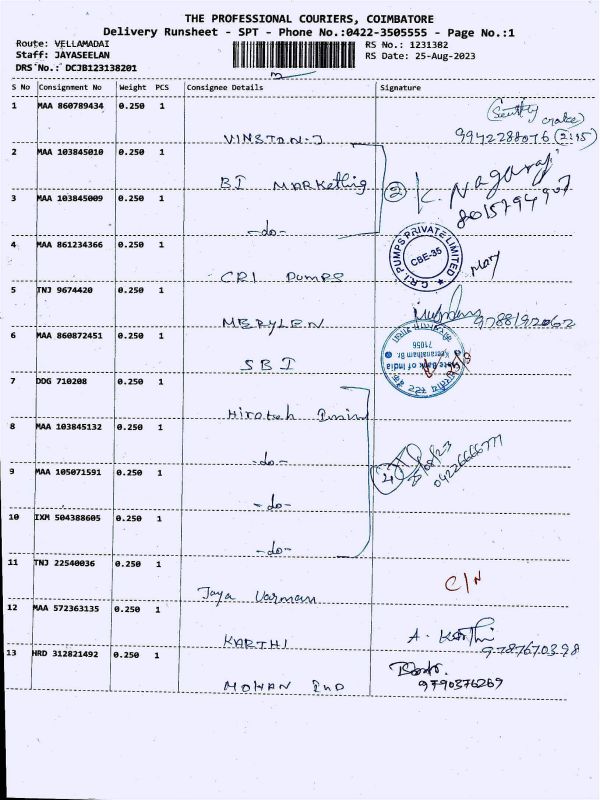 THE PROFESSIONAL COURIERS, COIMBATORE
Delivery Runsheet - SPT - Phone No.:0422-3505555 - Page No.:1
Route: VELLAMADAI RS No.: 1231382
Staff: JAYASEELAN RS Date: 25-Aug-2023
DRS No.: DCJB123138201
S No Consignment No Weight PCS Consignee Details Signature
1 MAA 860789434 0.250 1
VINSTON-J 9942288076 (2:15)
2 MAA 103845010 0.250 1
BI MARKetting (2) K. Nagaraj
3 MAA 103845009 0.250 1 8015794907
-do-
4 MAA 861234366 0.250 1
CRI PUMPS C.R.I. PUMPS PRIVATE LIMITED CBE-35
5 TNJ 9674420 0.250 1
MERYLEN 9788192062
6 MAA 860872451 0.250 1
SBI State Bank of India Keeranatham Br 71056
7 DDG 710208 0.250 1
Hirotech
8 MAA 103845132 0.250 1
-do- (4) 25/08/23 04226666777
9 MAA 105071591 0.250 1
-do-
10 IXM 504388605 0.250 1
-do-
11 TNJ 22540036 0.250 1
Jaya Varman C/N
12 MAA 572363135 0.250 1
KARTHI A. Karthi 9787670398
13 HRD 312821492 0.250 1
MOHAN IND 9790376269